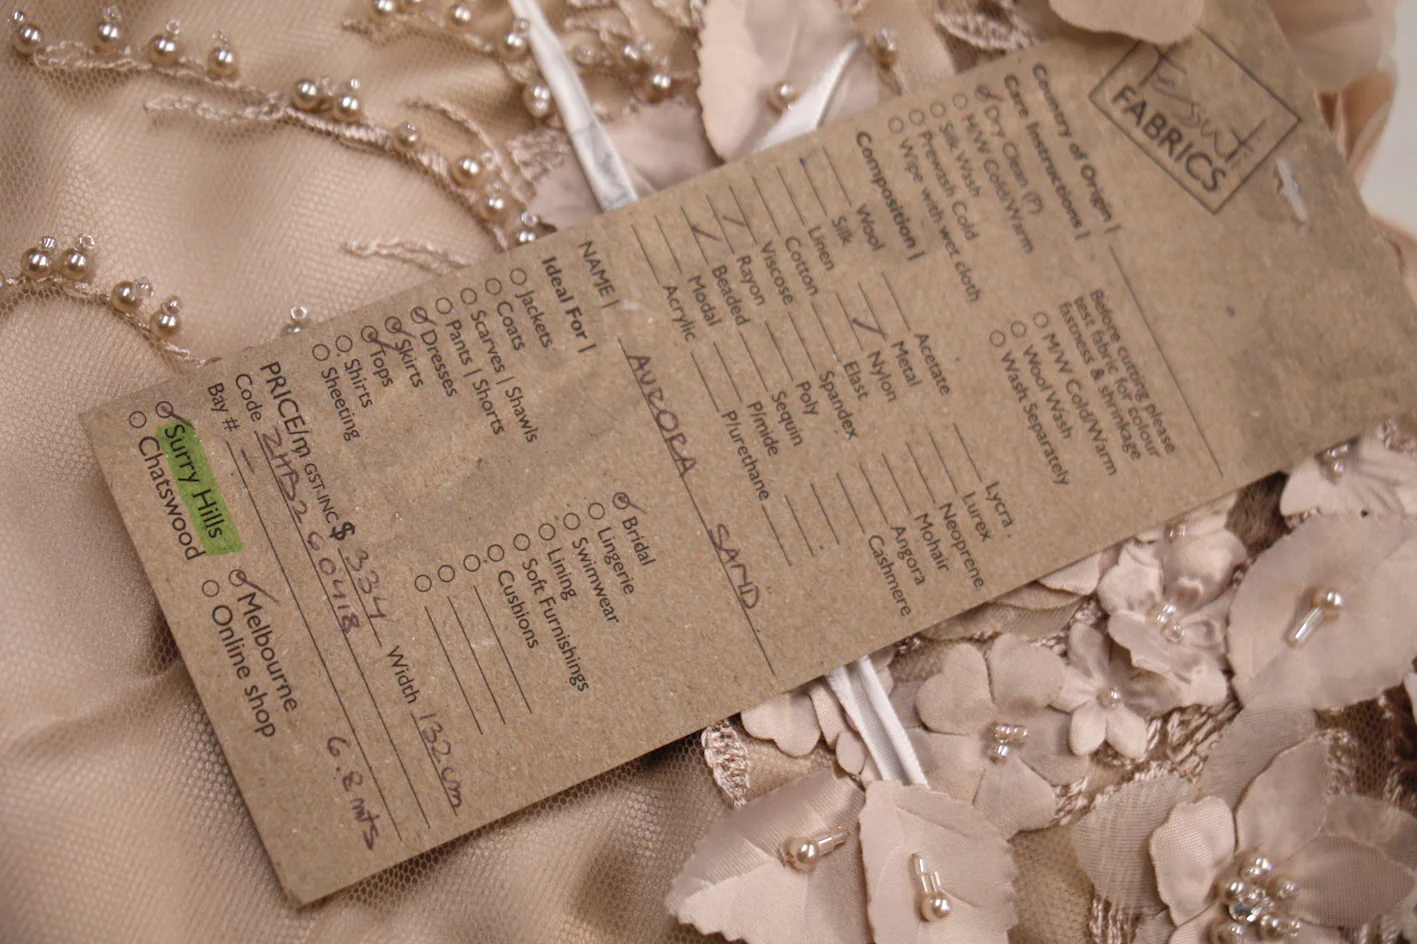 Tessuti
FABRICS
Country of Origin |
Care Instructions |
Dry Clean (P)
H/W Cold/Warm
Silk Wash
Prewash Cold
Wipe with wet cloth
Before cutting please
test fabric for colour
fastness & shrinkage
M/W Cold/Warm
Wool Wash
Wash Separately
Composition |
Wool Acetate Lycra
Silk Metal Lurex
Linen Nylon Neoprene
Cotton Elast Mohair
Viscose Spandex Angora
Rayon Poly Cashmere
Beaded Sequin
Modal P/mide
Acrylic P/urethane
NAME | AURORA SAND
Ideal For |
Jackets Bridal
Coats Lingerie
Scarves | Shawls Swimwear
Pants | Shorts Lining
Dresses Soft Furnishings
Skirts Cushions
Tops
Shirts
Sheeting
PRICE/m GST-INC $ 334 Width 132cm
Code ZHB260418
Bay # - 6.8 mts
Surry Hills Melbourne
Chatswood Online shop